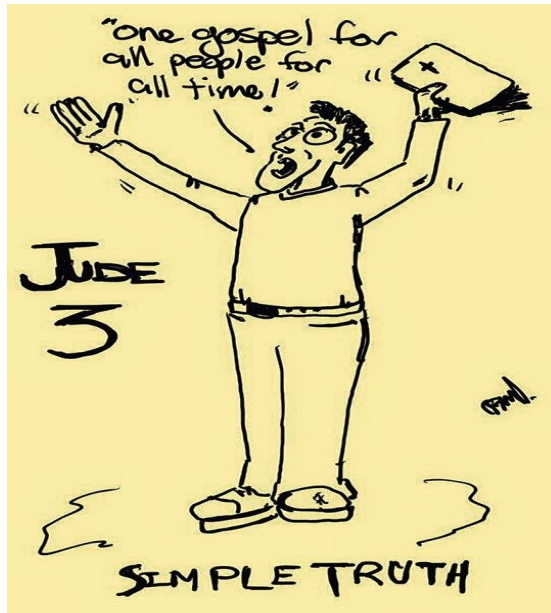 "one gospel for
all people for
all time!"
JUDE
3
SIMPLE TRUTH